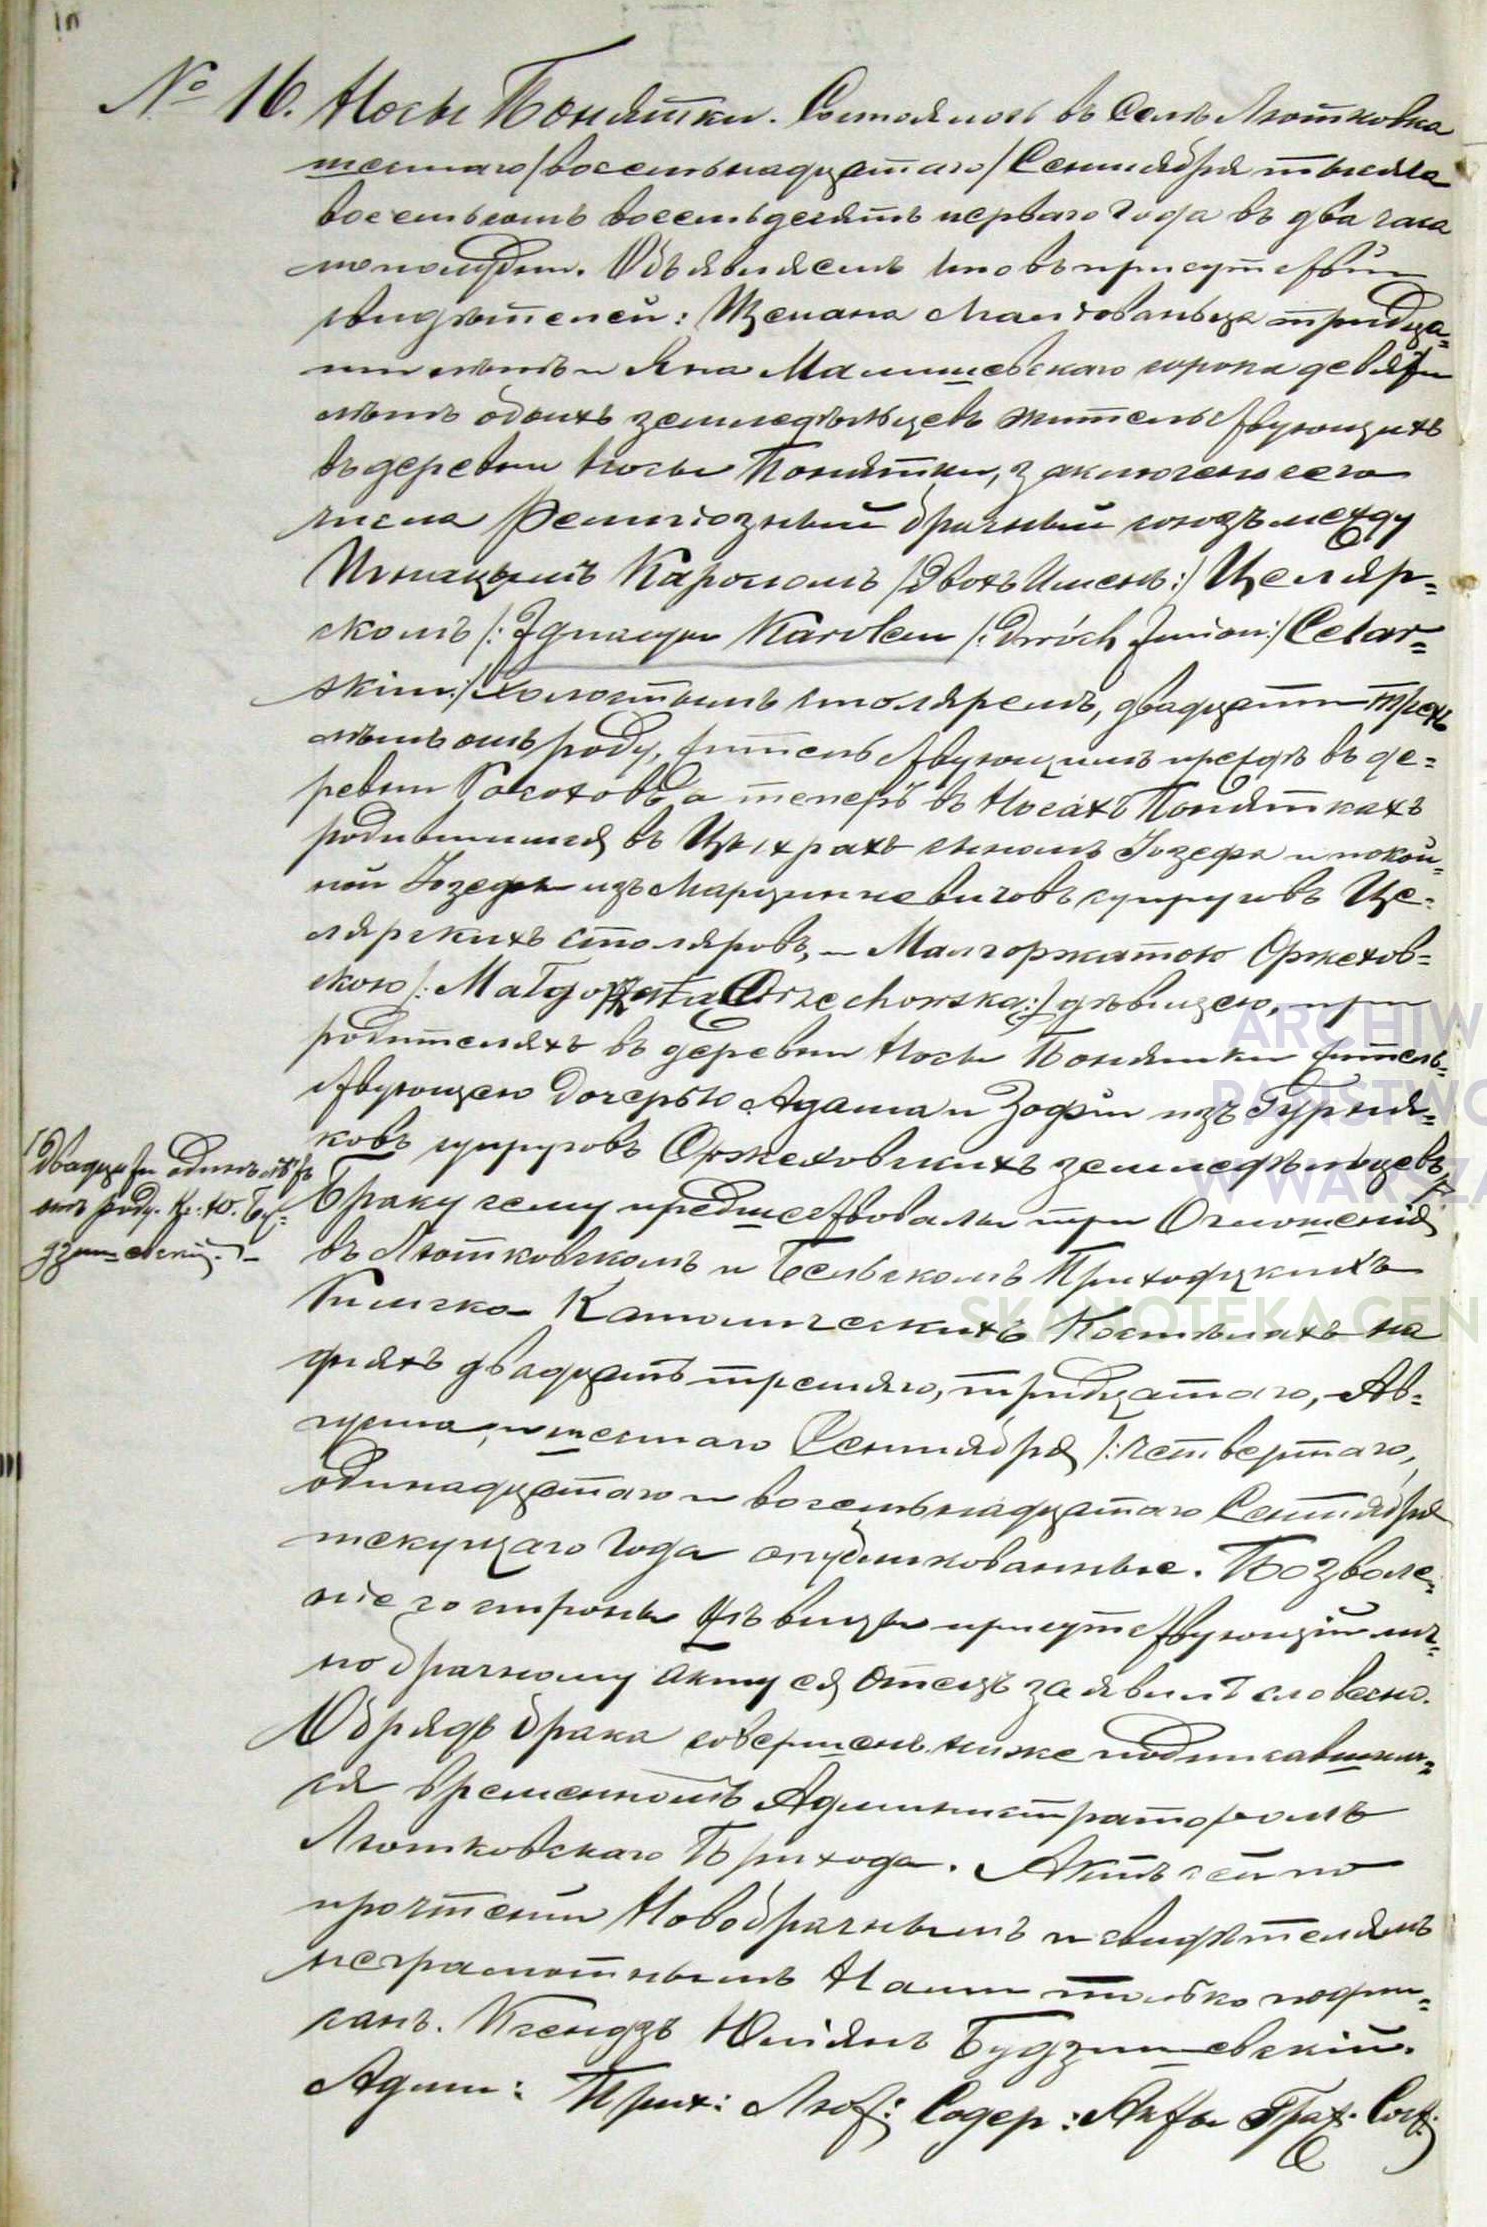 № 16. Носы Понятки. Состоялось въ Селѣ Лютковка
шестаго /восемьнадцатаго/ Сентября тысяча
восемьсотъ восемьдесятъ перваго года въ два часа
пополудни. Объявляемъ что въ присутствіи
свидѣтелей: тридца=
ти лѣтъ и Яна Малишевскаго сорока девяти
лѣтъ обоихъ земледѣльцевъ жительствующихъ
въ деревни Носы Понятки, заключенъ сего
числа религіозный брачный союзъ между
Игнацымъ Каролемъ /двохъ Именъ:/ Целяр=
скомъ /: Ignacym Karolem /: Dwóch Imion:/ Celar=
skim:/ холостымъ столяремъ, двадцати трехъ
лѣтъ отъ роду, жительствующимъ предъ въ де=
ревни а теперъ въ Носахъ Поняткахъ
родившимся въ сыномъ Іозефа и покой=
ной Іозефы изъ Марцинкевичовъ супруговъ Це=
лярскихъ столяровъ, и Малгоржатою Оржехов=
скою /: Małgorzata Orzechowska:/ дѣвицею, при
родителяхъ въ деревни Носы Понятки житель=
ствующею дочерью Адама и Зофіи изъ Гурня=
ковъ супруговъ Оржеховскихъ земледѣльцевъ
/Двадцати одинъ лѣтъ
отъ роду. Кс: Ю. Бу=
дзишевскій.
Браку сему предшествовали три Оглошенія
въ Лютковскомъ и Бельскомъ Приходскихъ
Римско Католическихъ Костелахъ на
дняхъ двадцать третяго, тридцатаго, Ав=
густа, и шестаго Сентября /: четвертаго,
одинадцатаго и восемьнадцатаго Сентября
текущаго года опубликованные. Позволе=
ніе со стороны дѣвицы присутствующій лич=
но брачному акту ея Отецъ заявилъ словесно.
Обрядъ брака совершенъ ниже подписавшим=
ся временномъ Администраторомъ
Лютковскаго Прихода. Актъ сей по
прочтеніи Новобрачнымъ и свидѣтелямъ
неграмотнымъ Нами только подпи=
санъ. Ксендзъ Юліянъ Будзишевскій.
Админ: Прих: Лют: Содер: Акты Граж. Сост.